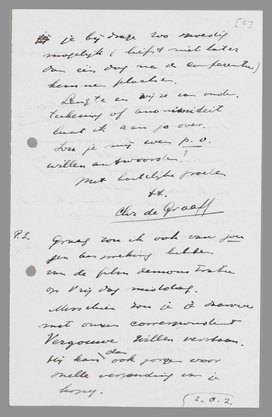 [2]
je bijdrage zoo spoedig
mogelijk (liefst niet later
dan één dag na de conferentie)
kunnen plaatsen.
Lengte en wijze van onder-
tekening of anonimiteit
laat ik aan je over.
Zou je mij even p.o.
willen antwoorden!
Met hartelijke groeten
tt.
Chr de Graaff
P.S. Graag zou ik ook van jou
een bespreking hebben
van de film demonstratie
op Vrijdag middag.
Misschien zou je je daarover
met onzen correspondent
Vergouwe willen verstaan.
Hij kan dan ook zorgen voor
snelle verzending van je
kopy.
z.o.z.